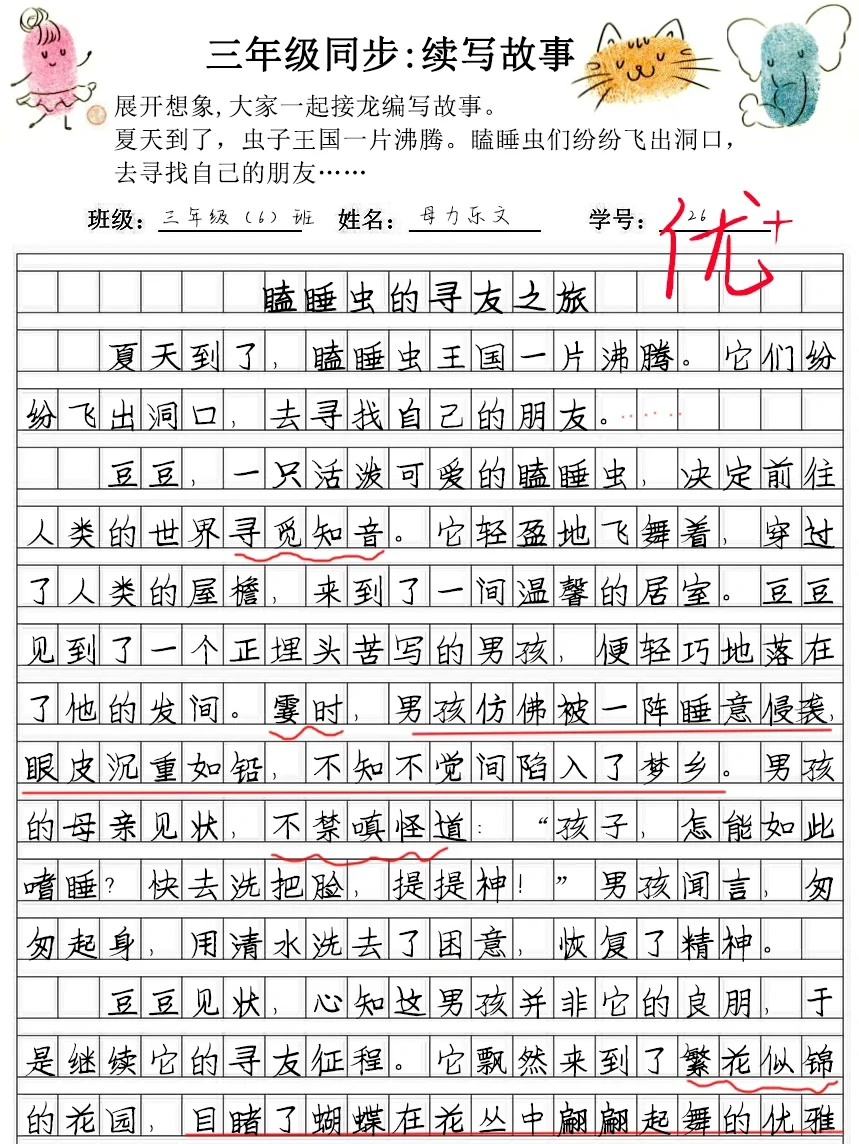 三年级同步:续写故事
展开想象,大家一起接龙编写故事。
夏天到了,虫子王国一片沸腾。瞌睡虫们纷纷飞出洞口,
去寻找自己的朋友……
班级: 三年级(6)班 姓名: 母力乐文 学号: 26
优+
瞌睡虫的寻友之旅
夏天到了,瞌睡虫王国一片沸腾。它们纷
纷飞出洞口,去寻找自己的朋友。……
豆豆,一只活泼可爱的瞌睡虫,决定前往
人类的世界寻觅知音。它轻盈地飞舞着,穿过
了人类的屋檐,来到了一间温馨的居室。豆豆
见到了一个正埋头苦写的男孩,便轻巧地落在
了他的发间。霎时,男孩仿佛被一阵睡意侵袭,
眼皮沉重如铅,不知不觉间陷入了梦乡。男孩
的母亲见状,不禁嗔怪道:“孩子,怎能如此
嗜睡?快去洗把脸,提提神!”男孩闻言,匆
匆起身,用清水洗去了困意,恢复了精神。
豆豆见状,心知这男孩并非它的良朋,于
是继续它的寻友征程。它飘然来到了繁花似锦
的花园,目睹了蝴蝶在花丛中翩翩起舞的优雅